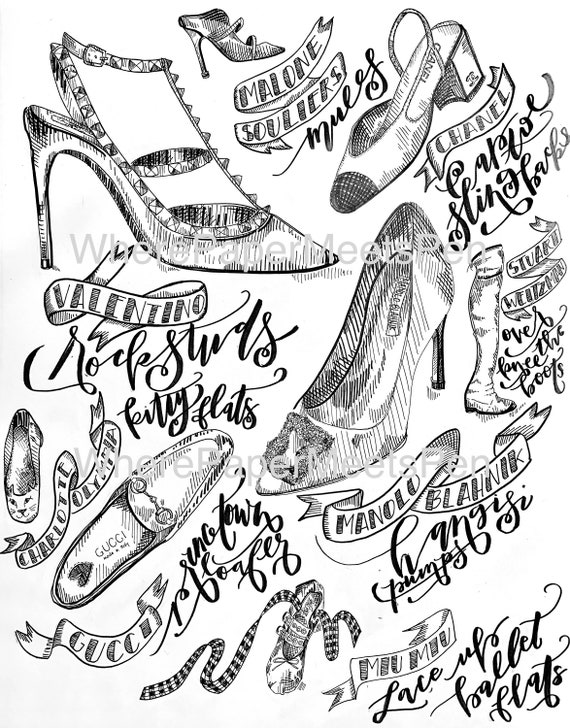 MALONE
SOULIERS
mules
CHANEL
CHANEL
Captoe
sling backs
WherePaperMeetsPen
VALENTINO
Rockstuds
STUART
WEITZMAN
over
knee the
boots
kitty flats
CHARLOTTE OLYMPIA
WherePaperMeetsPen
MANOLO BLAHNIK
hangisi
pumps
GUCCI
princetown
loafer
GUCCI
MIU MIU
Lace up
ballet
flats